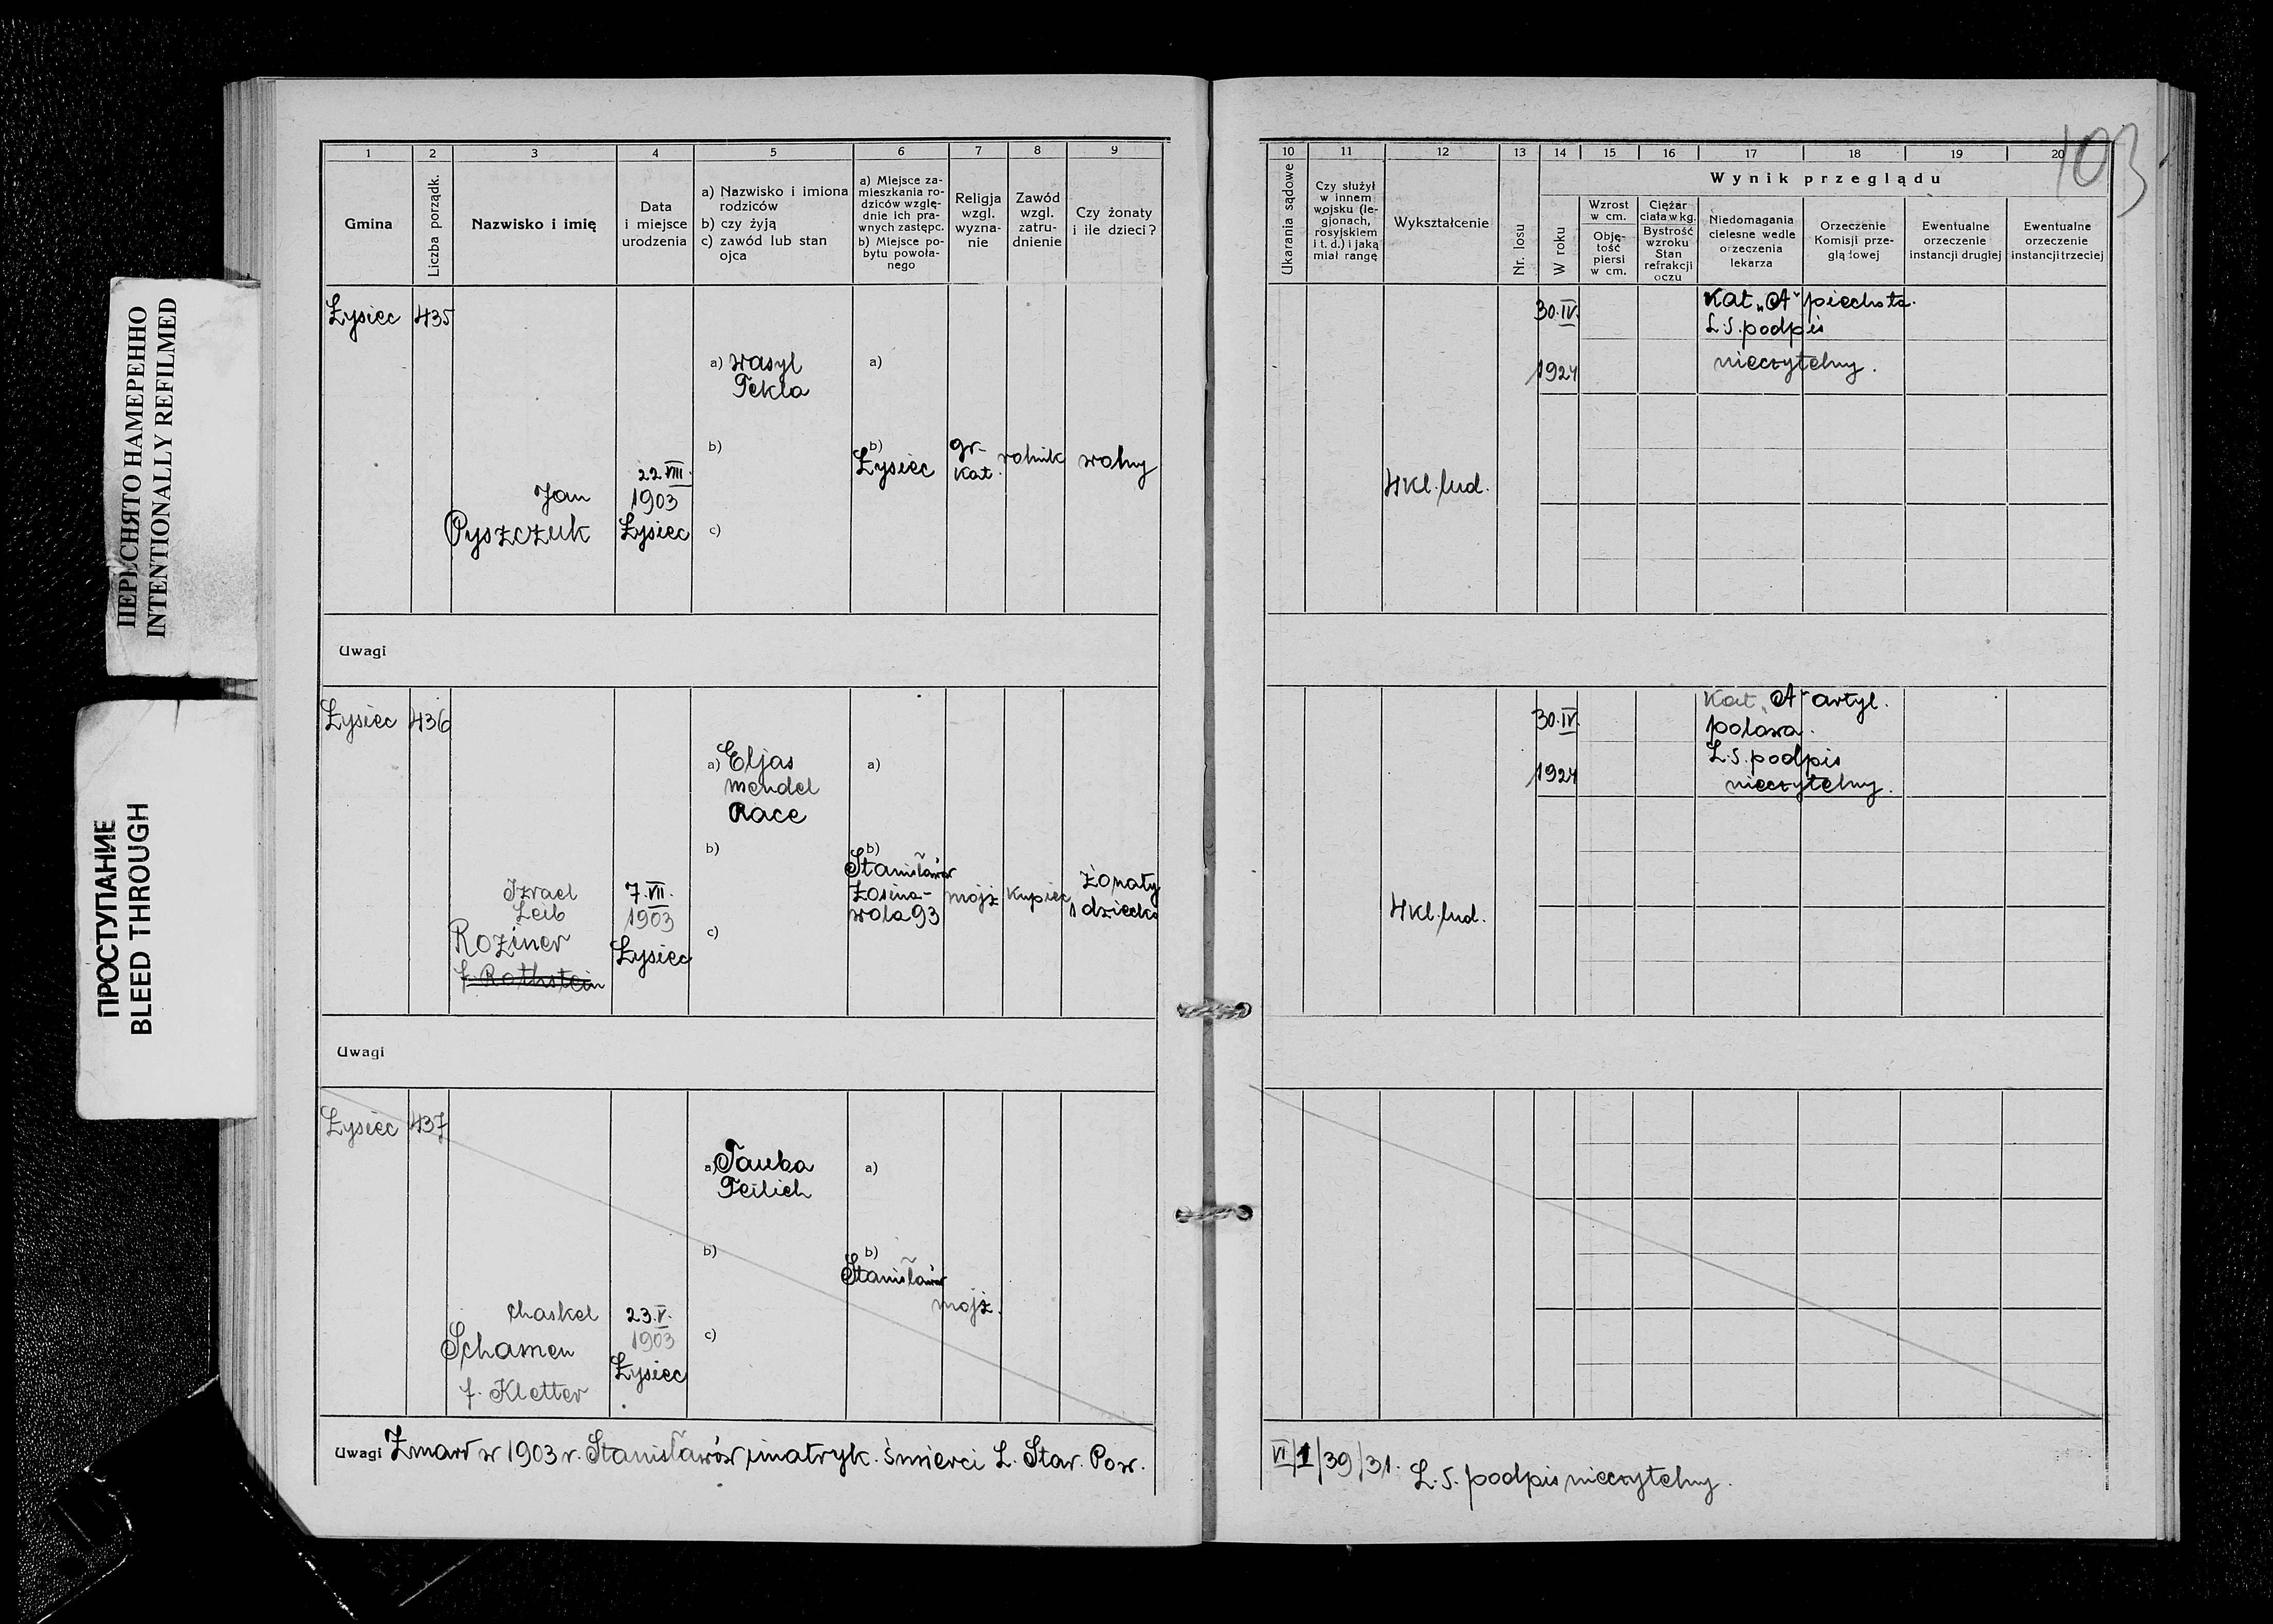 ПЕРЕСНЯТО НАМЕРЕННО
INTENTIONALLY REFILMED
ПРОСТУПАНИЕ
BLEED THROUGH
103
1 2 3 4 5 6 7 8 9
Gmina
Liczba porządk.
Nazwisko i imię
Data
i miejsce
urodzenia
a) Nazwisko i imiona
rodziców
b) czy żyją
c) zawód lub stan
ojca
a) Miejsce za-
mieszkania ro-
dziców wzglę-
dnie ich pra-
wnych zastępc.
b) Miejsce po-
bytu powoła-
nego
Religja
wzgl.
wyzna-
nie
Zawód
wzgl.
zatru-
dnienie
Czy żonaty
i ile dzieci?
10 11 12 13 14 15 16 17 18 19 20
Ukarania sądowe
Czy służył
w innem
wojsku (le-
gjonach,
rosyjskiem
i t. d.) i jaką
miał rangę
Wykształcenie
Nr. losu
Wynik przeglądu
W roku
Wzrost
w cm.
Obję-
tość
piersi
w cm.
Ciężar
ciała w kg.
Bystrość
wzroku
Stan
refrakcji
oczu
Niedomagania
cielesne wedle
orzeczenia
lekarza
Orzeczenie
Komisji prze-
glądowej
Ewentualne
orzeczenie
instancji drugiej
Ewentualne
orzeczenie
instancji trzeciej
Łysiec 435
Jan
Pyszczuk
22 VIII.
1903
Łysiec
a) Wasyl
Tekla
b)
c)
a)
b)
Łysiec
gr-
kat.
rolnik
wolny
4 kl. lud.
30.IV.
1924
Kat „A" piechota.
L.S. podpis
nieczytelny.
Uwagi
Łysiec 436
Izrael
Leib
Roziner
f. Rothstein
7.VII.
1903
Łysiec
a) Eljas
Mendel
Race
b)
c)
a)
b)
Stanisławów
Łosina-
wola 93
mojż
kupiec
żonaty
1 dziecko
4 kl. lud.
30.IV.
1924
Kat „A" artyl.
polowa.
L.S. podpis
nieczytelny.
Uwagi
Łysiec 437
Chaskel
Schamen
f. Kletter
23.V.
1903
Łysiec
a) Tauba
Feilich
b)
c)
a)
b)
Stanisławów
mojż.
Uwagi Zmarł w 1903 r. Stanisławów, matryk. śmierci L. Star. Pow.
VI/1/39/31. L.S. podpis nieczytelny.